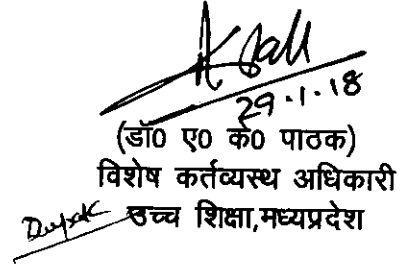 29.1.18
(डॉ0 ए0 के0 पाठक)
विशेष कर्तव्यस्थ अधिकारी
उच्च शिक्षा,मध्यप्रदेश